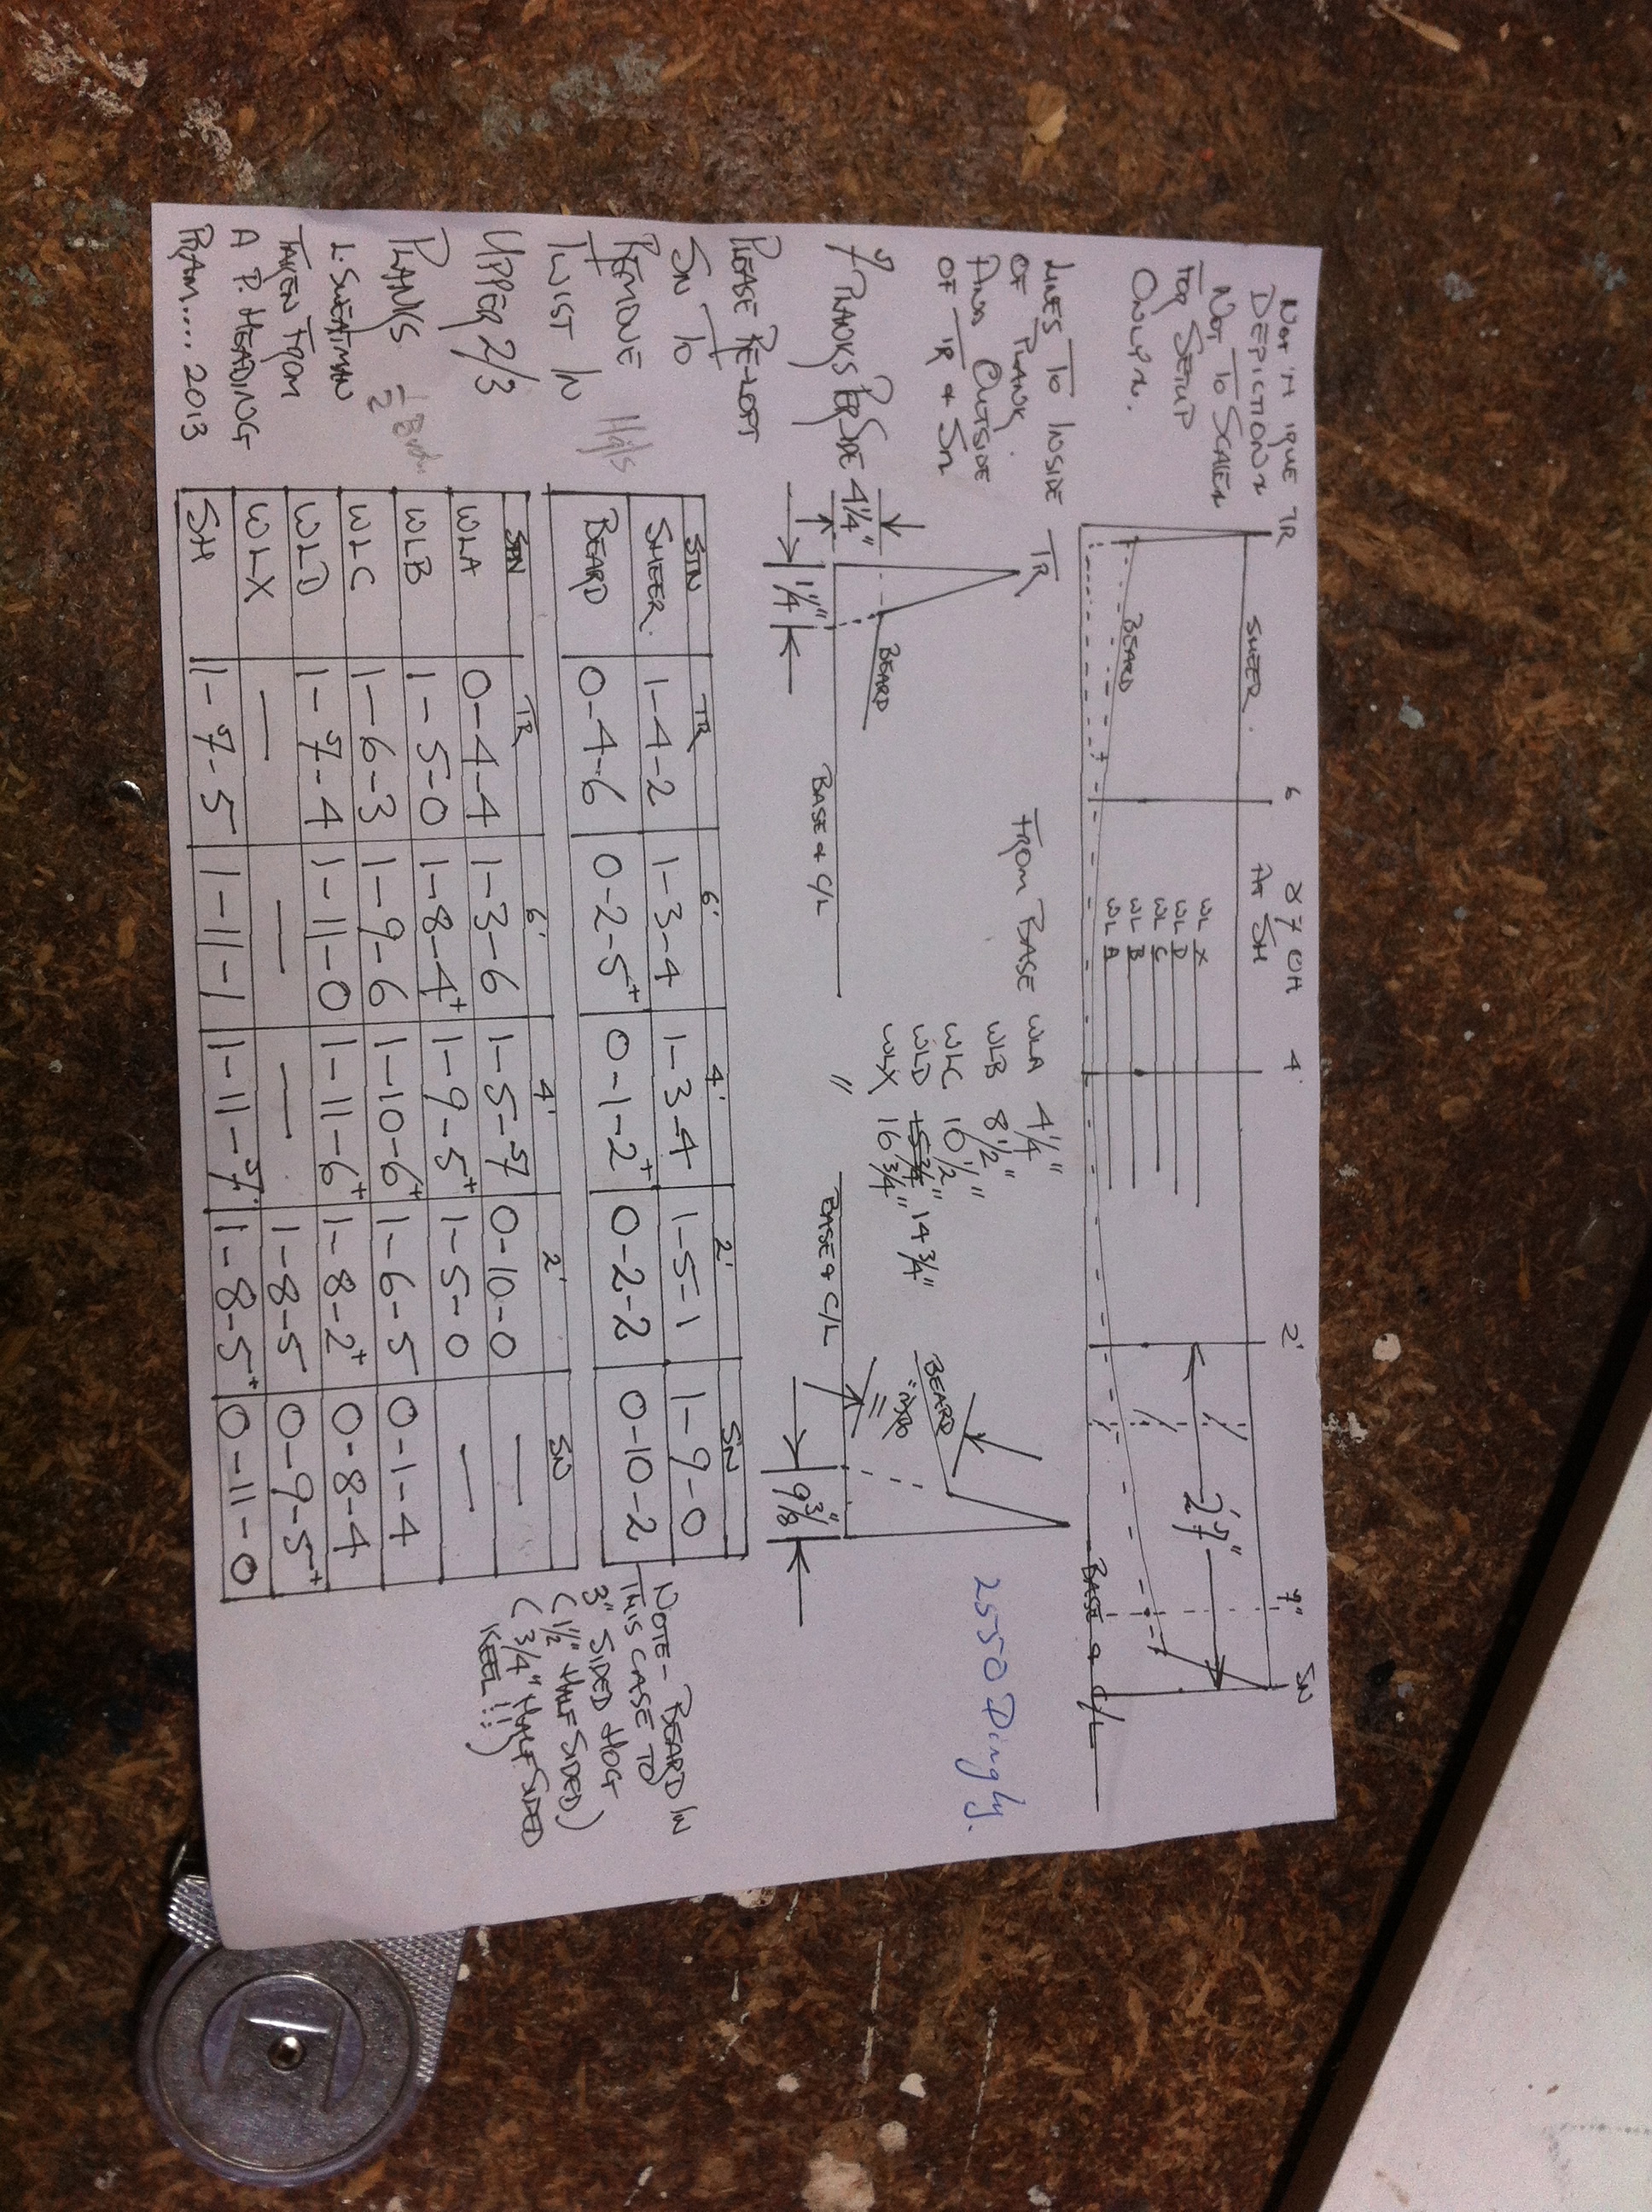 DEPICTION
NOT TO SCALE
FOR SETUP
ONLY
TR
6
8' 7" OH
AT SH
4'
2'
9"
SN
SHEER
BEARD
WL X
WL D
WL C
WL B
WL A
2' 7"
BASE & C/L
LINES TO INSIDE
OF PLANK
AND OUTSIDE
OF TR & SN
7 PLANKS PER SIDE
TR
4 1/4"
1 1/4"
BEARD
BASE & C/L
FROM BASE WLA 4 1/4"
WLB 8 1/2"
WLC 10 1/2"
WLD 15 3/4" 14 3/4"
" WLX 16 3/4"
BASE & C/L
BEARD
9 3/8"
2550 Dinghy.
PLEASE RE-LOFT
SN TO
REMOVE
TWIST IN
UPPER 2/3
PLANKS
L. SWEATMAN
TAKEN FROM
A P. HEADING
PRAM.... 2013
STN TR 6' 4' 2' SN
SHEER. 1-4-2 1-3-4 1-3-4 1-5-1 1-9-0
BEARD 0-4-6 0-2-5+ 0-1-2+ 0-2-2 0-10-2
STN TR 6' 4' 2' SN
WLA 0-4-4 1-3-6 1-5-7 0-10-0 —
WLB 1-5-0 1-8-4+ 1-9-5+ 1-5-0 —
WLC 1-6-3 1-9-6 1-10-6+ 1-6-5 0-1-4
WLD 1-7-4 1-11-0 1-11-6+ 1-8-2+ 0-8-4
WLX — — — 1-8-5 0-9-5+
SH 1-7-5 1-11-1 1-11-7 1-8-5+ 0-11-0
NOTE- BEARD IN
THIS CASE TO
3" SIDED HOG
(1 1/2" HALF SIDED)
( 3/4" HALF SIDED
KEEL!!)